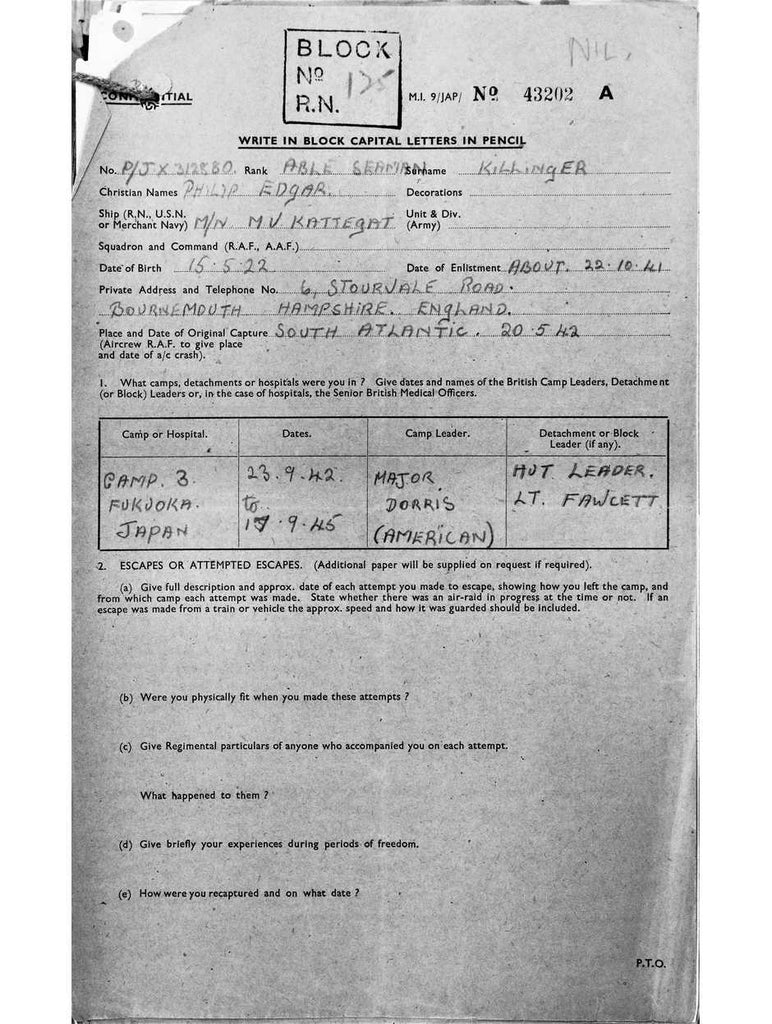 BLOCK
Nº 125
R.N.
NIL.
CONFIDENTIAL
M.I. 9/JAP/ Nº 43202 A
WRITE IN BLOCK CAPITAL LETTERS IN PENCIL
No. P/JX312880. Rank ABLE SEAMAN Surname KILLINGER
Christian Names PHILIP EDGAR. Decorations
Ship (R.N., U.S.N. or Merchant Navy) M/N M V KATTEGAT Unit & Div. (Army)
Squadron and Command (R.A.F., A.A.F.)
Date of Birth 15.5.22 Date of Enlistment ABOUT. 22.10.41
Private Address and Telephone No. 6, STOURVALE ROAD.
BOURNEMOUTH HAMPSHIRE. ENGLAND.
Place and Date of Original Capture SOUTH ATLANTIC. 20.5.42
(Aircrew R.A.F. to give place
and date of a/c crash).
1. What camps, detachments or hospitals were you in ? Give dates and names of the British Camp Leaders, Detachment
(or Block) Leaders or, in the case of hospitals, the Senior British Medical Officers.
Camp or Hospital. Dates. Camp Leader. Detachment or Block Leader (if any).
CAMP. 3. 23.9.42. MAJOR HUT LEADER.
FUKUOKA. to DORRIS LT. FAWCETT
JAPAN 17.9.45 (AMERICAN)
2. ESCAPES OR ATTEMPTED ESCAPES. (Additional paper will be supplied on request if required).
(a) Give full description and approx. date of each attempt you made to escape, showing how you left the camp, and
from which camp each attempt was made. State whether there was an air-raid in progress at the time or not. If an
escape was made from a train or vehicle the approx. speed and how it was guarded should be included.
(b) Were you physically fit when you made these attempts ?
(c) Give Regimental particulars of anyone who accompanied you on each attempt.
What happened to them ?
(d) Give briefly your experiences during periods of freedom.
(e) How were you recaptured and on what date ?
P.T.O.